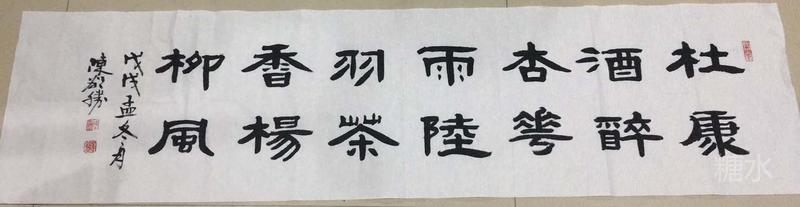 杜康
酒醉
杏花
雨陸
羽茶
香楊
柳風
戊戌孟冬月
陳勝
糖水